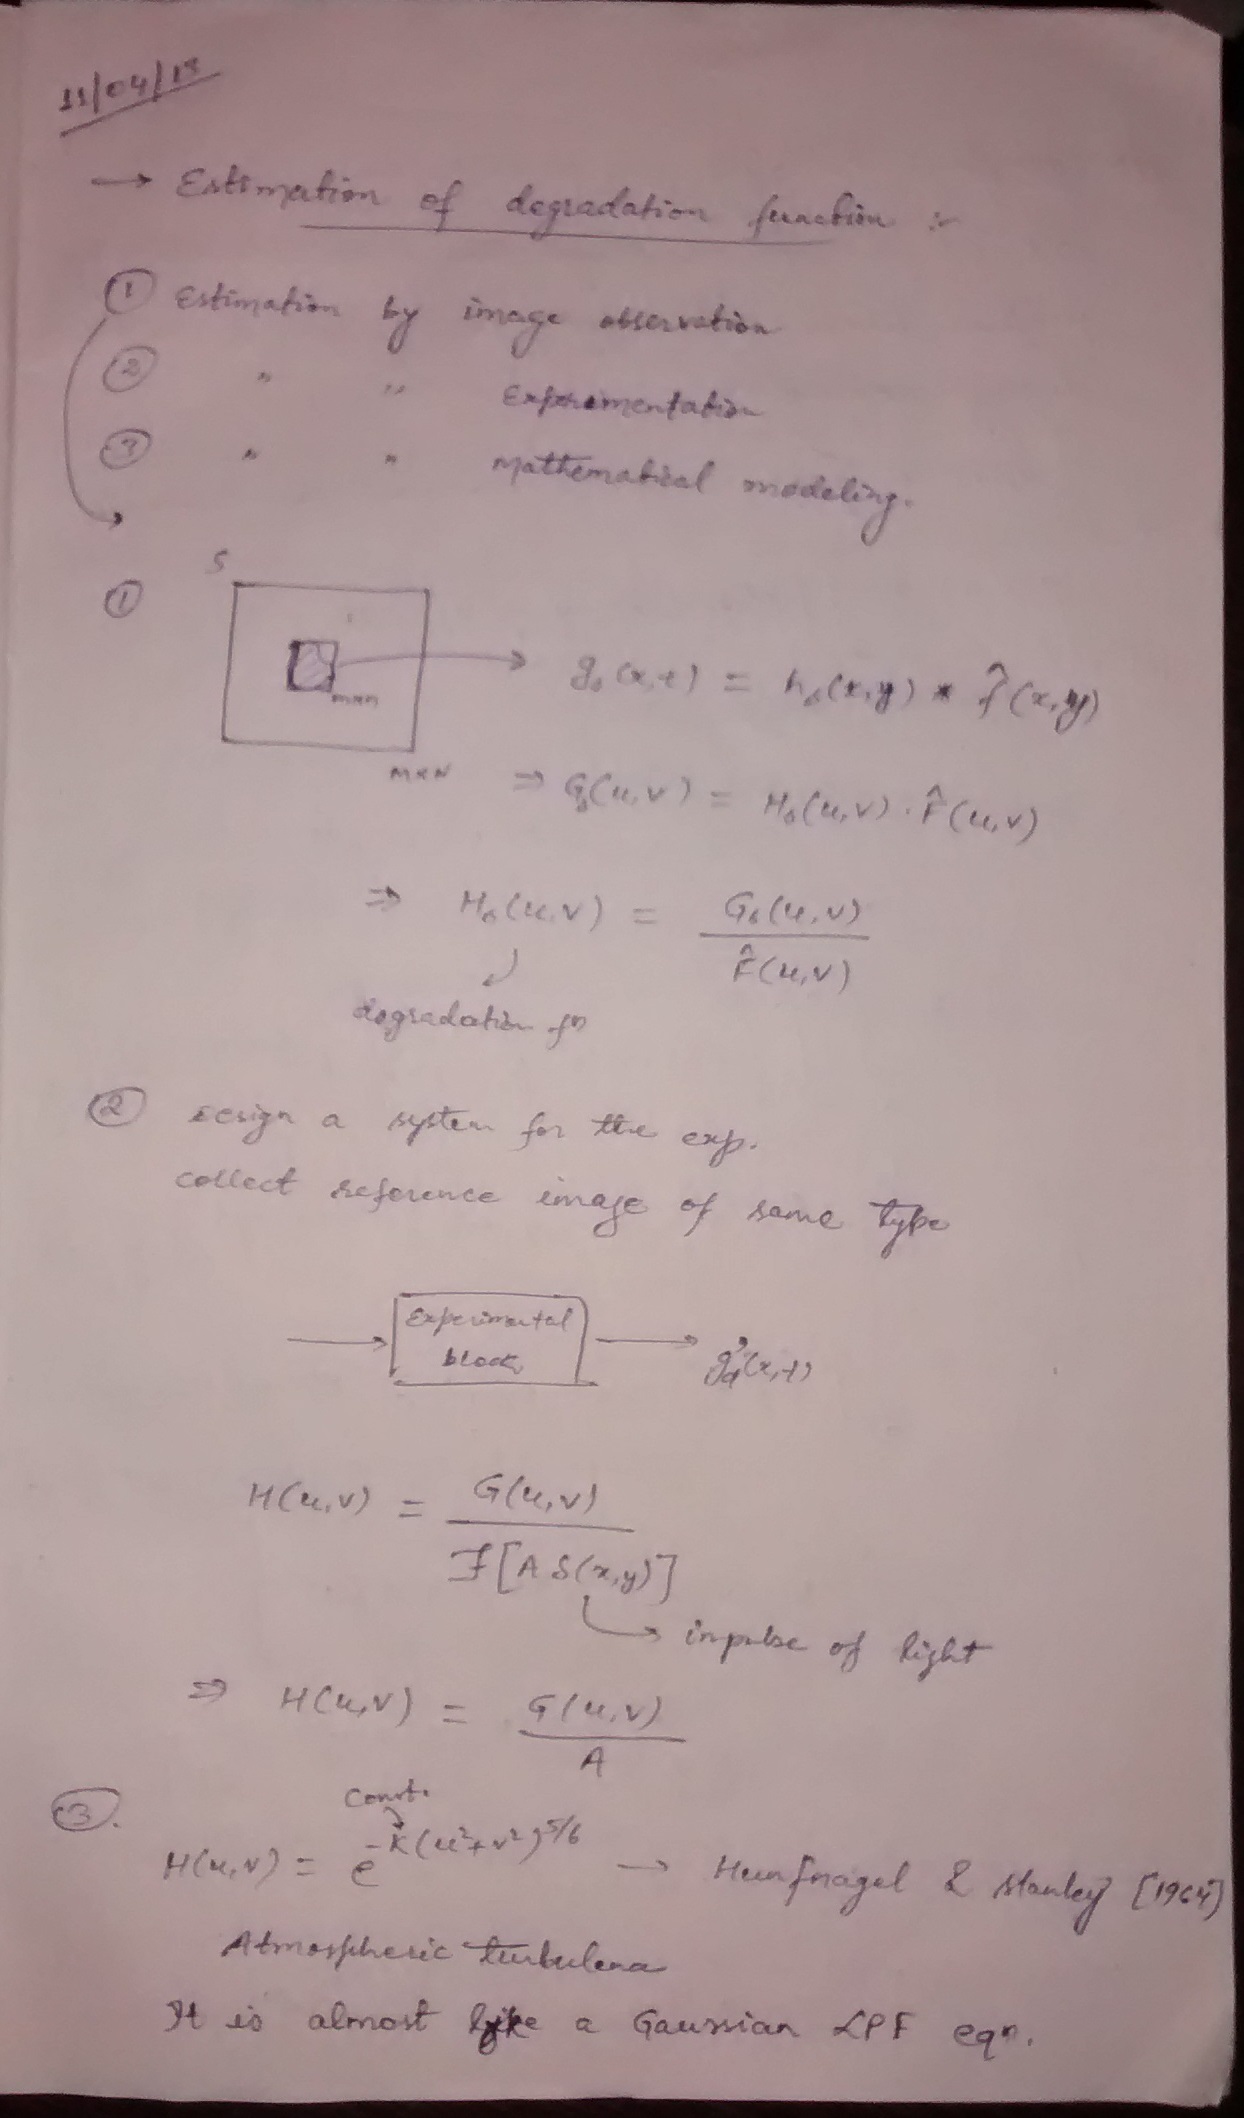 11/04/18
→ Estimation of degradation function :-
① Estimation by image observation
② " " Experimentation
③ " " Mathematical modeling.
① S
m×n
→ gs(x,t) = hs(x,y) * f̂(x,y)
M×N ⇒ Gs(u,v) = Hs(u,v) · F̂(u,v)
⇒ Hs(u,v) = Gs(u,v) / F̂(u,v)
degradation fn
② Design a system for the exp.
collect reference image of same type
→ Experimental block → g(x,t)
H(u,v) = G(u,v) / F[A δ(x,y)]
→ impulse of light
⇒ H(u,v) = G(u,v) / A
③. const.
H(u,v) = e^-k(u²+v²)^5/6 → Hunfnagel & Stanley [1964]
Atmospheric turbulence
It is almost like a Gaussian LPF eqn.